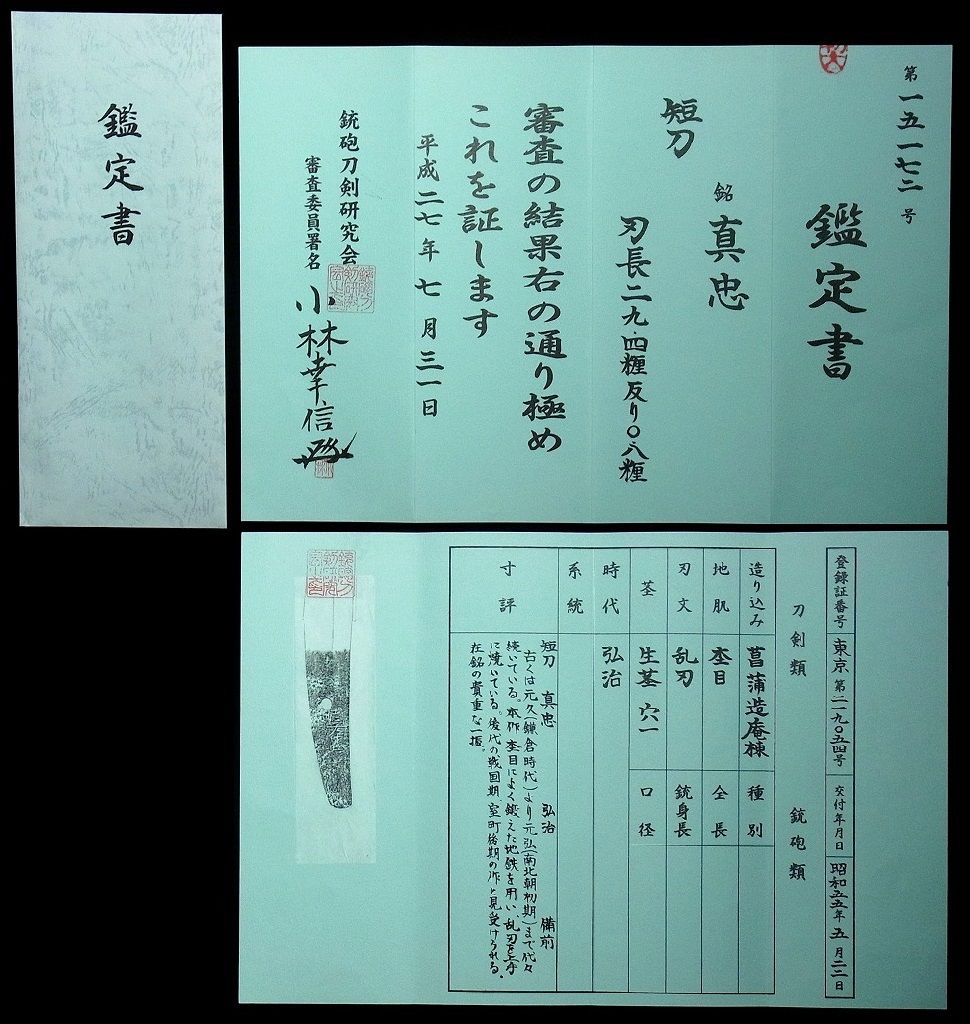 鑑定書
第一五一七二号
鑑定書
短刀
銘 真忠
刃長二九.四糎反り〇.八糎
審査の結果右の通り極め
これを証します
平成二七年七月三一日
銃砲刀剣研究会
審査委員署名
小林幸信
登録証番号 東京第二一九〇五四号 交付年月日 昭和五五年五月二二日
刀剣類 銃砲類
造り込み 菖蒲造庵棟 種別
地肌 杢目 全長
刃文 乱刃 銃身長
茎 生茎 穴一 口径
時代 弘治
系統
寸評
短刀 真忠 弘治 備前
古くは元久(鎌倉時代)より元弘(南北朝初期)まで代々
続いている。本作 杢目によく鍛えた地鉄を用い、乱刃を上手
に焼いている。後代の戦国期 室町後期の作と見受けられる。
在銘の貴重な一振。